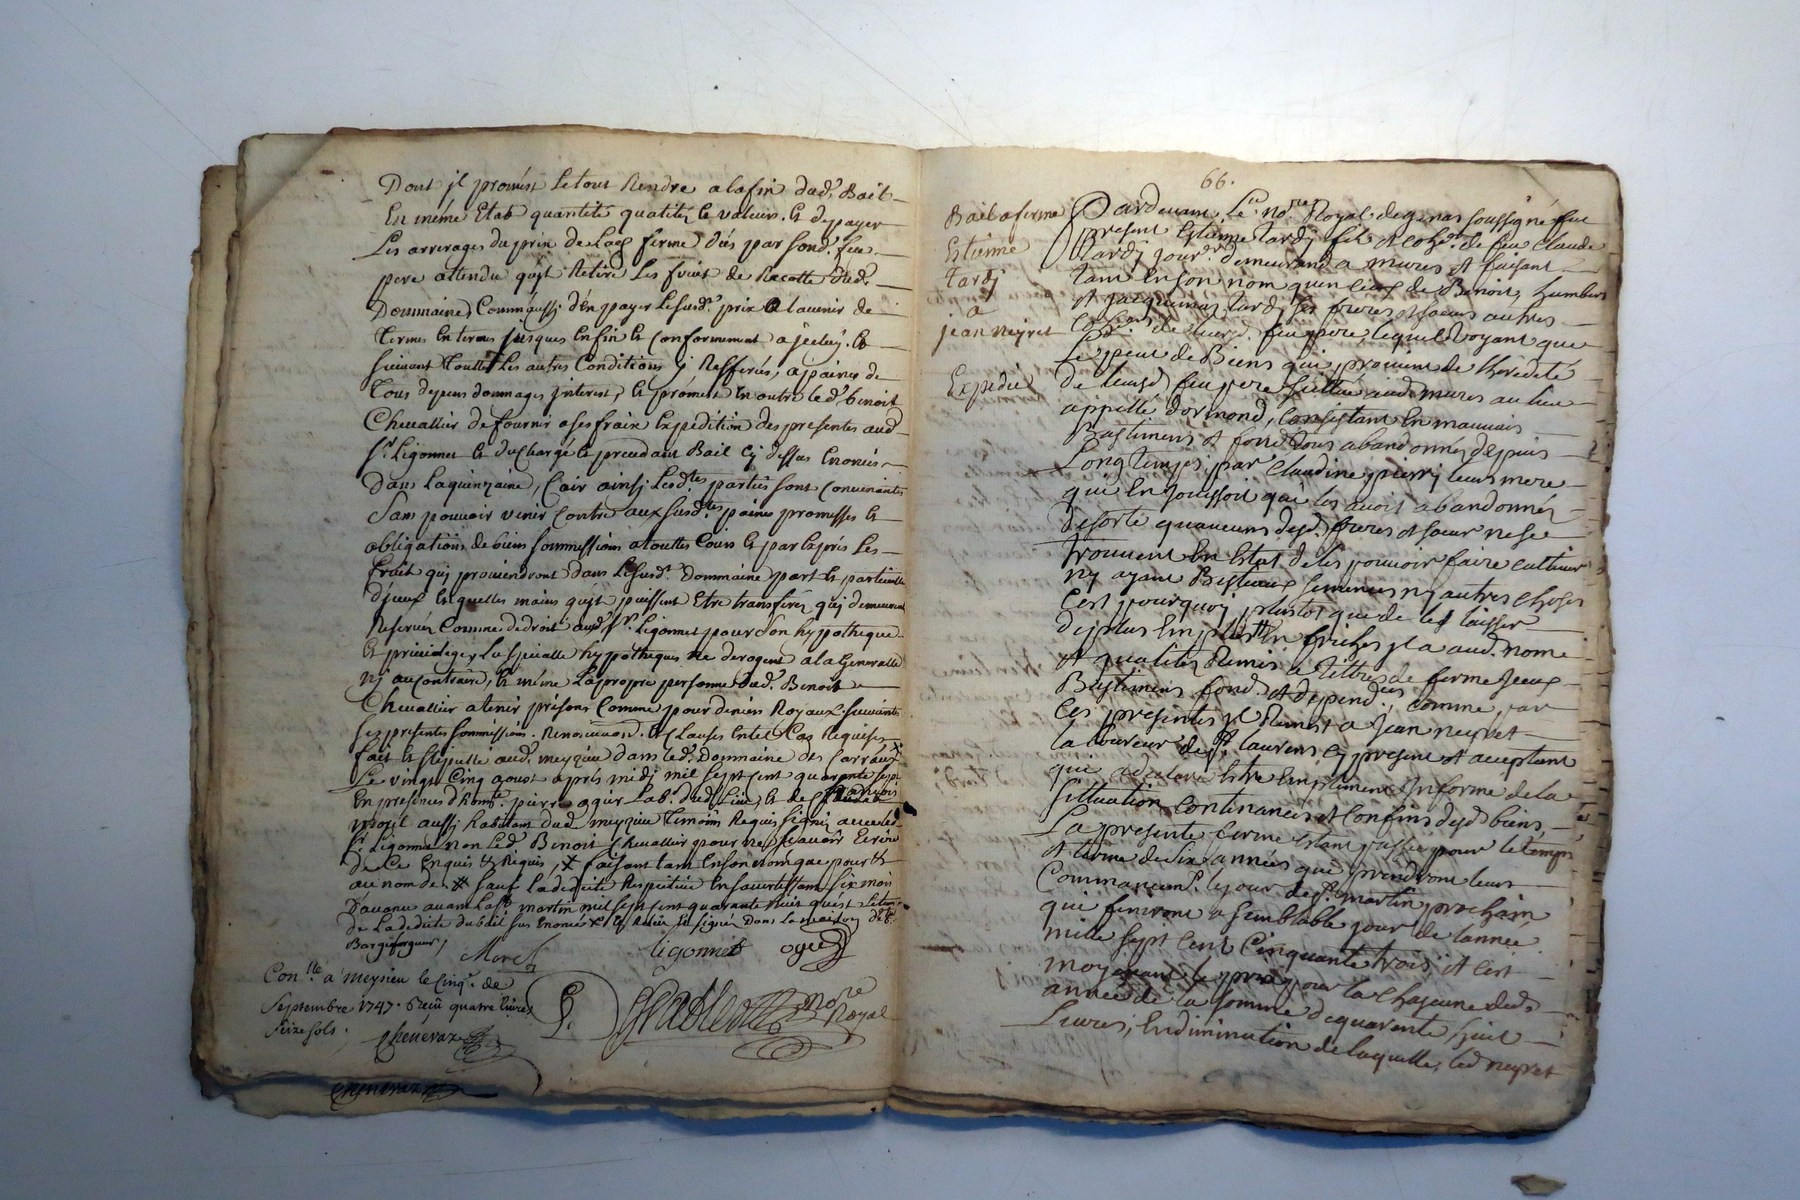 Dont jl promest le tout Rendre a lafin dudt. Bail
En même Etab quantité qualitéz & valeurs. & depayer
Les arrerages du prix de Lad. ferme dûs par sond. feu
pere attendu qu'jl Retire Les fruits de Racolte dud.
Dommaine, Comm'aussi d'En payer Lesusdt. prix a lavenir de
Termes En termes jusques Enfin & conformement a jceluy. &
suivant toutes Les autres Conditions y Refferés, a paines de
Tous depens dommages jnterest, & promest En outre led. benoit
Chevallier de fournir a ses fraix Expédition des presentes aud
sr. Ligonnet & du Bail Cy dessus
Dans Laquinzaine, Car ainsj Lesdtes parties sont Convenantes
Sans pouvoir venir Contre aux susdtes paines promesses &
obligations de biens soumissions a touttes Cours & par Exprés Les
fruits quj proviendront dans Lesusdt. Dommaine part & particulle
D'jceux En quelles mains qu'jls puissent Etre transferéz quj demeurent
Reservéz Comme de droit audt. sr. Ligonnet pour son hypotheque
& privilege, La speciale hypotheque ne derogeant a la Generalle
Nj au Contraire, & même La propre personne dud. Benoit
Chevallier a tenir prisons Comme pour deniers Royaux. suivants
ses presentes soumissions. Renonciation. & Clauses En tel Cas Requises
fait & stipullé aud. meyzieu dans led. Dommaine des
Le vingt Cinq aoust apres midj mil sept cent quarante sept
En presences d'honte. pierre ogier Lab. dud. Lieu, & de françois
morel aussi habitant dud. meyzieu temoins Requis signés avec led.
sr. Ligonnet non Led. Benoit Chevallier pour ne sçavoir Ecrire
de Ce Enquis & Requis, faisant tant En son nom que pour &
au nom de sauf La dedite Respective En s'avertissant six mois
D'avance avant La st. martin mil sept cent quarante huit qu'est
de La dedite du bail sus Enoncé signé Dans La maison
Morel ligonnet ogier
Conlle. a meyzieu le Cinq. de
Septembre 1747. Reçu quatre livres
seize sols.
chenevaz
nore
Royal
chenevaz
66.
Bail a ferme
Estienne
Tardj
a
jean neyret
Expedié
Pardevant Le nore Royal de genas soussigné fut
present Estienne tardj fils et cohr. de feu Claude
tardj jour. demeurand a mures et faisant
tant En son nom qu'en Celuy de Benoit, humbert
et tardj ses freres et soeurs autres
cohers. de leurd. feu pere, lequel voyant que
le peut de Biens qui provient de L'hérédité
de leurd feu pere scittué aud. mures au lieu
appellé dormond, Consistant En mauvais
Bastiments et fond tous abandonnéz depuis
Longtemps par Claudine pierry leurs mere
qui En jouissoit qui les avoit abandonnéz
desorte qu'aucuns desd. freres et soeur ne se
trouvent En Estat de les pouvoir faire cultiver
ny ayant Bestiaux semences ny autres choses
C'est pourquoy plustot que de les laisser
de plus En plus En friches jl a aud. nom
et qualités Remis a tittre de ferme jceux
Bastiments fond. et dépendces. comme par
Ces presentes jl Remet a jean neyret
laboureur de st. laurens cy present et acceptant
qui a déclaré Estre Emplement Informé de la
scittuation contenances et confins desd. biens,
La presente ferme Estant passée pour le temps
et terme de six années qui prendront leurs
Commancemt. le jour de st. martin prochain
qui finiront a semblable jour de l'année
mille sept cent Cinquante trois, et C'est
moyenant le prix pour la chascune desd.
année de la somme de quarente huit
Livres, En diminution de laquelle, led neyret